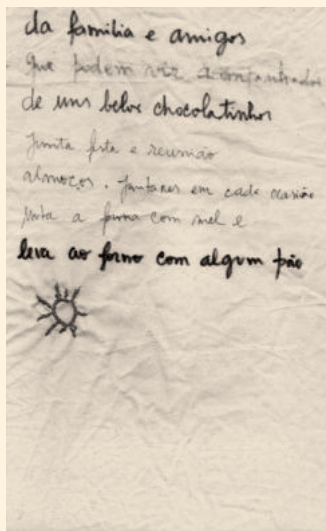 da familia e amigos
que podem vir acompanhados
de uns belos chocolatinhos
Junta festa e reunião
almoços. Jantares em cada ocasião
unta a forma com mel e
leva ao forno com algum pão